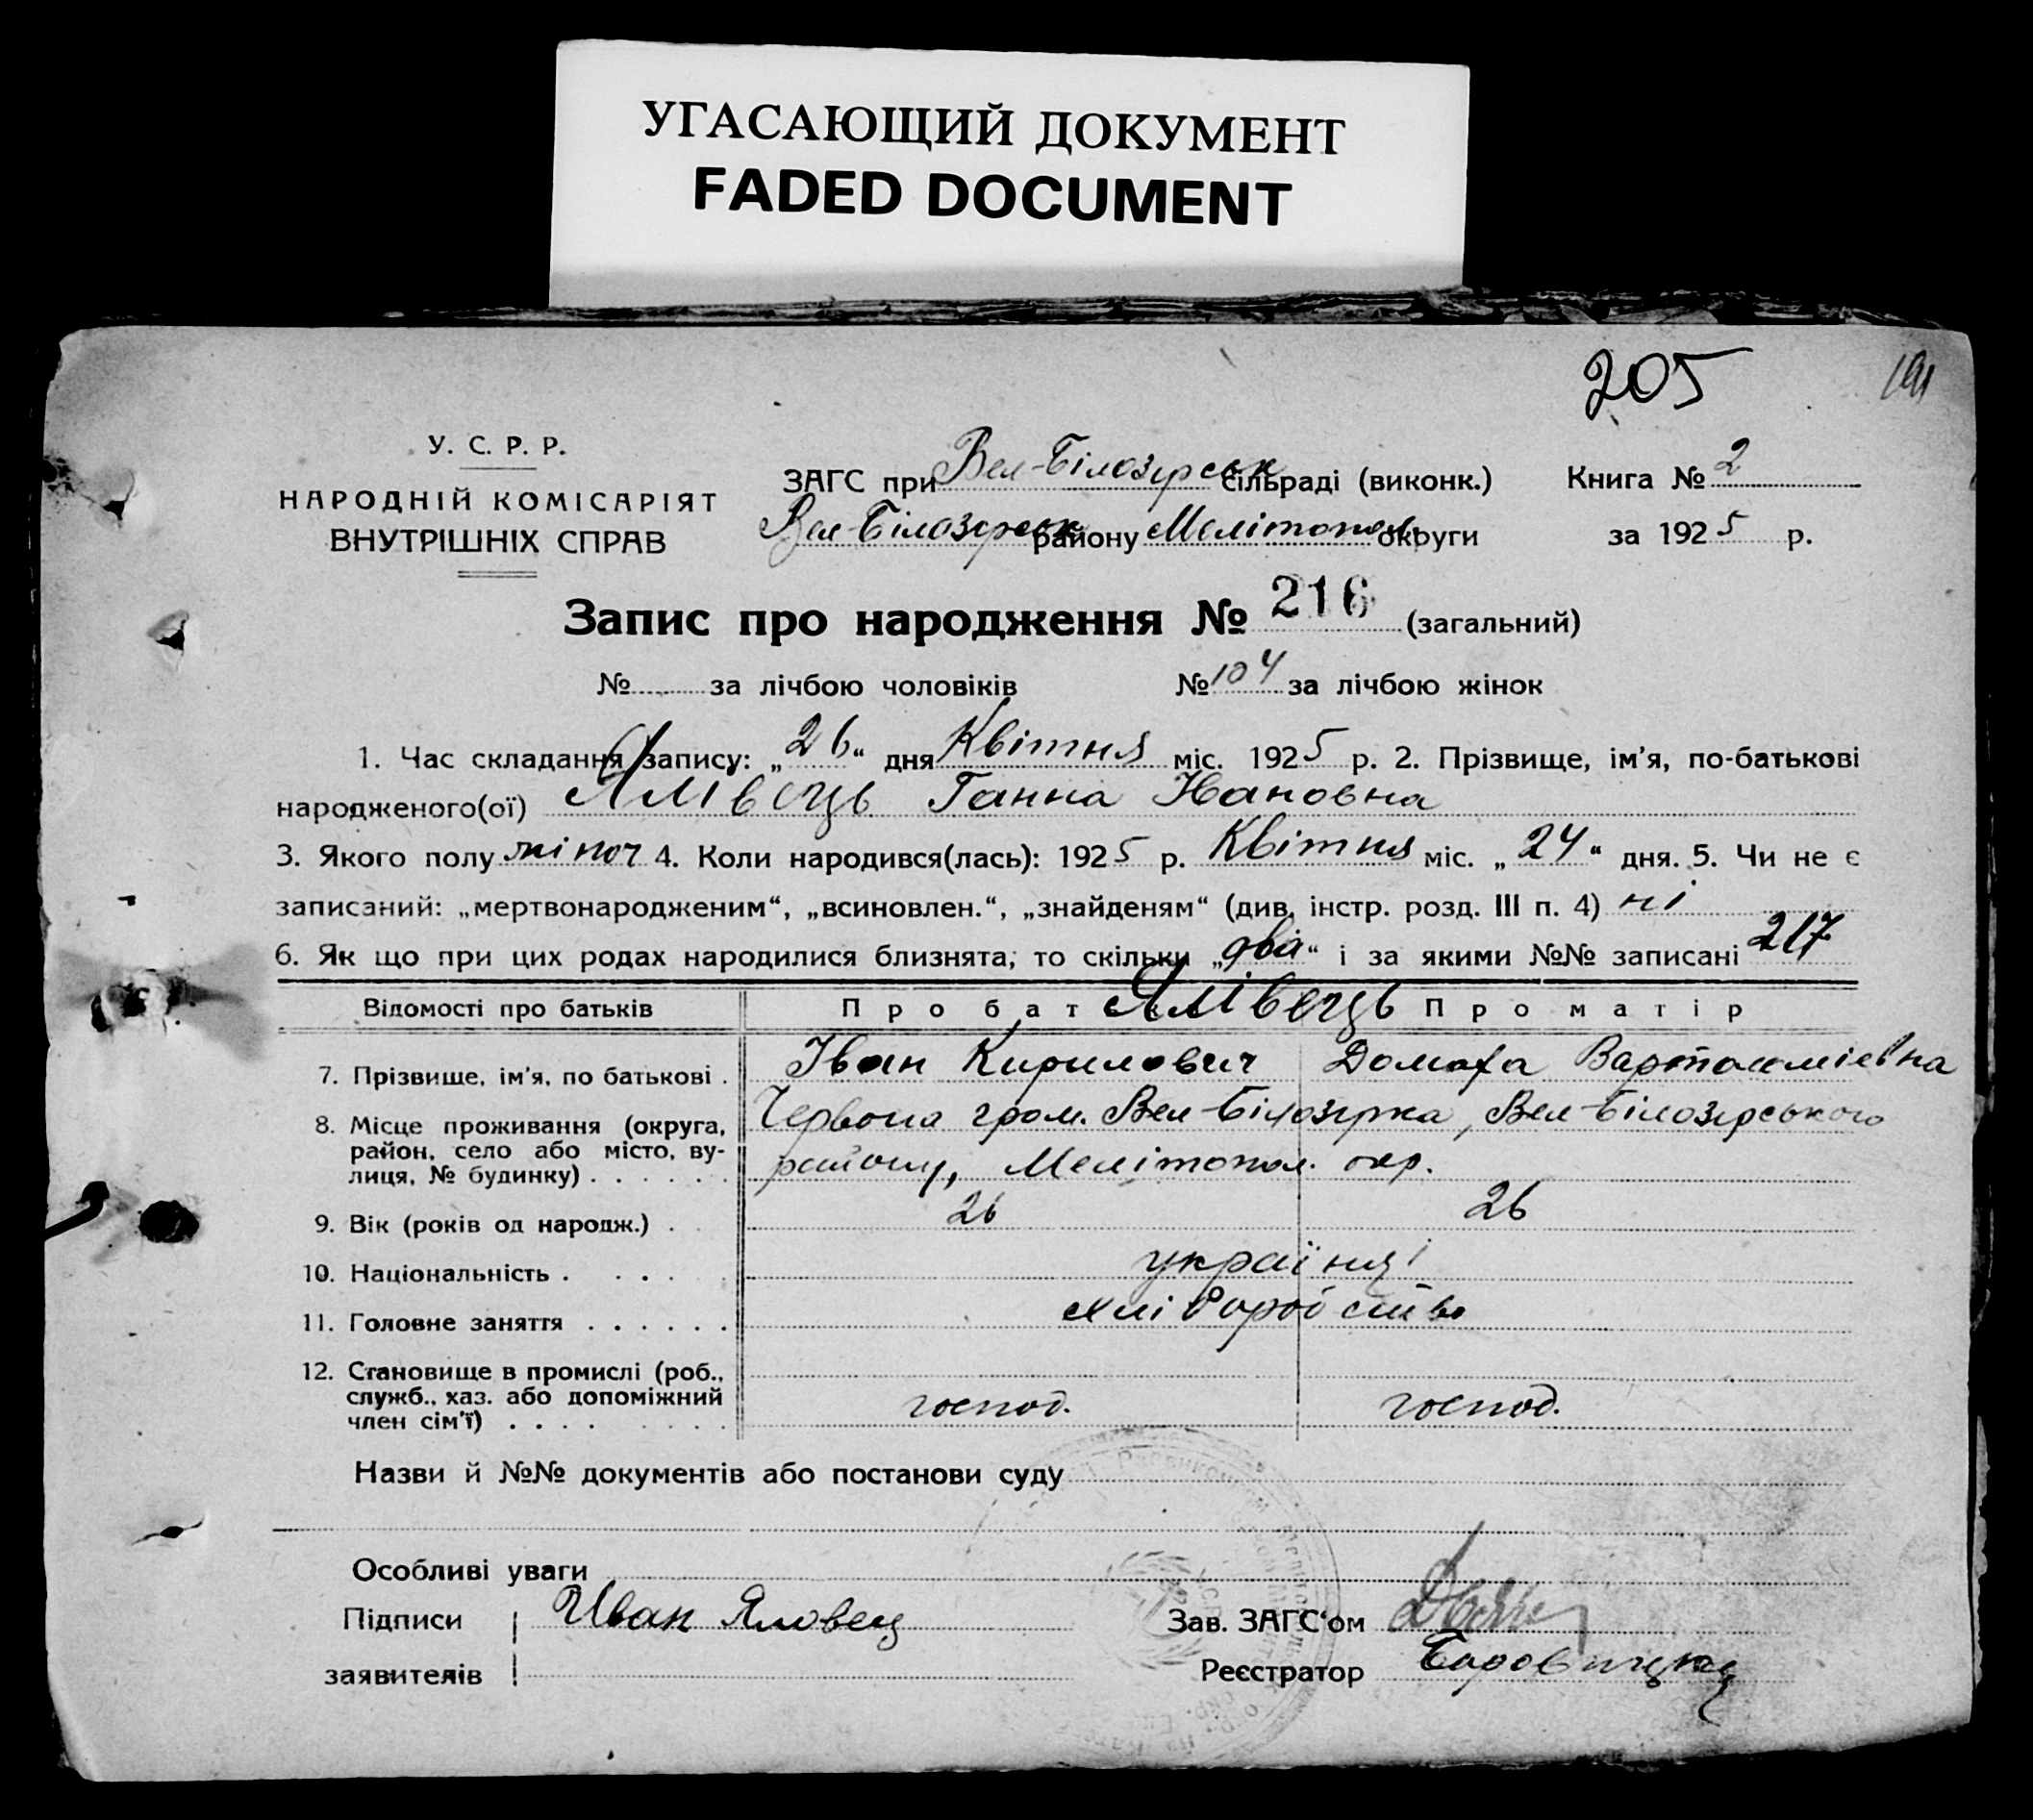 УГАСАЮЩИЙ ДОКУМЕНТ
FADED DOCUMENT
205
У. С. Р. Р.
НАРОДНІЙ КОМІСАРІЯТ
ВНУТРІШНІХ СПРАВ
ЗАГС при Вел-Білозірськ сільраді (виконк.) Книга № 2
Вел-Білозірськ району Мелітопол. округи за 1925 р.
Запис про народження № 216 (загальний)
№ за лічбою чоловіків № 104 за лічбою жінок
1. Час складання запису: „26“ дня Квітня міс. 1925 р. 2. Прізвище, ім'я, по-батькові
народженого(ої) Ялівець Ганна Івановна
3. Якого полу жіноч 4. Коли народився(лась): 1925 р. Квітня міс. „24“ дня. 5. Чи не є
записаний: „мертвонародженим“, „всиновлен.“, „знайденям“ (див. інстр. розд. III п. 4) ні
6. Як що при цих родах народилися близнята, то скільки „два“ і за якими №№ записані 217
Відомості про батьків Про бат Ялівець Про матір
7. Прізвище, ім'я, по батькові . Іван Кирилович Домаха Вартоломіевна
8. Місце проживання (округа, Червона гром. Вел-Білозірка, Вел-Білозірського
район, село або місто, ву- району, Мелітопол. окр.
лиця, № будинку) . . . . . .
9. Вік (років од народж.) . 26 26
10. Національність . . . . . українці
11. Головне заняття . . . . . . хліборобство
12. Становище в промислі (роб.,
служб., хаз. або допоміжний господ. господ.
член сім'ї) . . . . . . . .
Назви й №№ документів або постанови суду
Особливі уваги
Підписи Иван Яловец Зав. ЗАГС'ом
заявителів Реєстратор